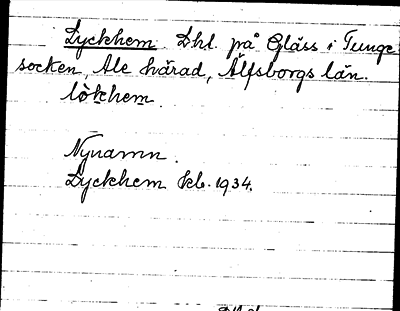 Lyckhem. Dhl. på Gläss i Tunge
socken, Ale härad, Älfsborgs län.
lò̀khem.
Nynamn.
Lyckhem kb. 1934.